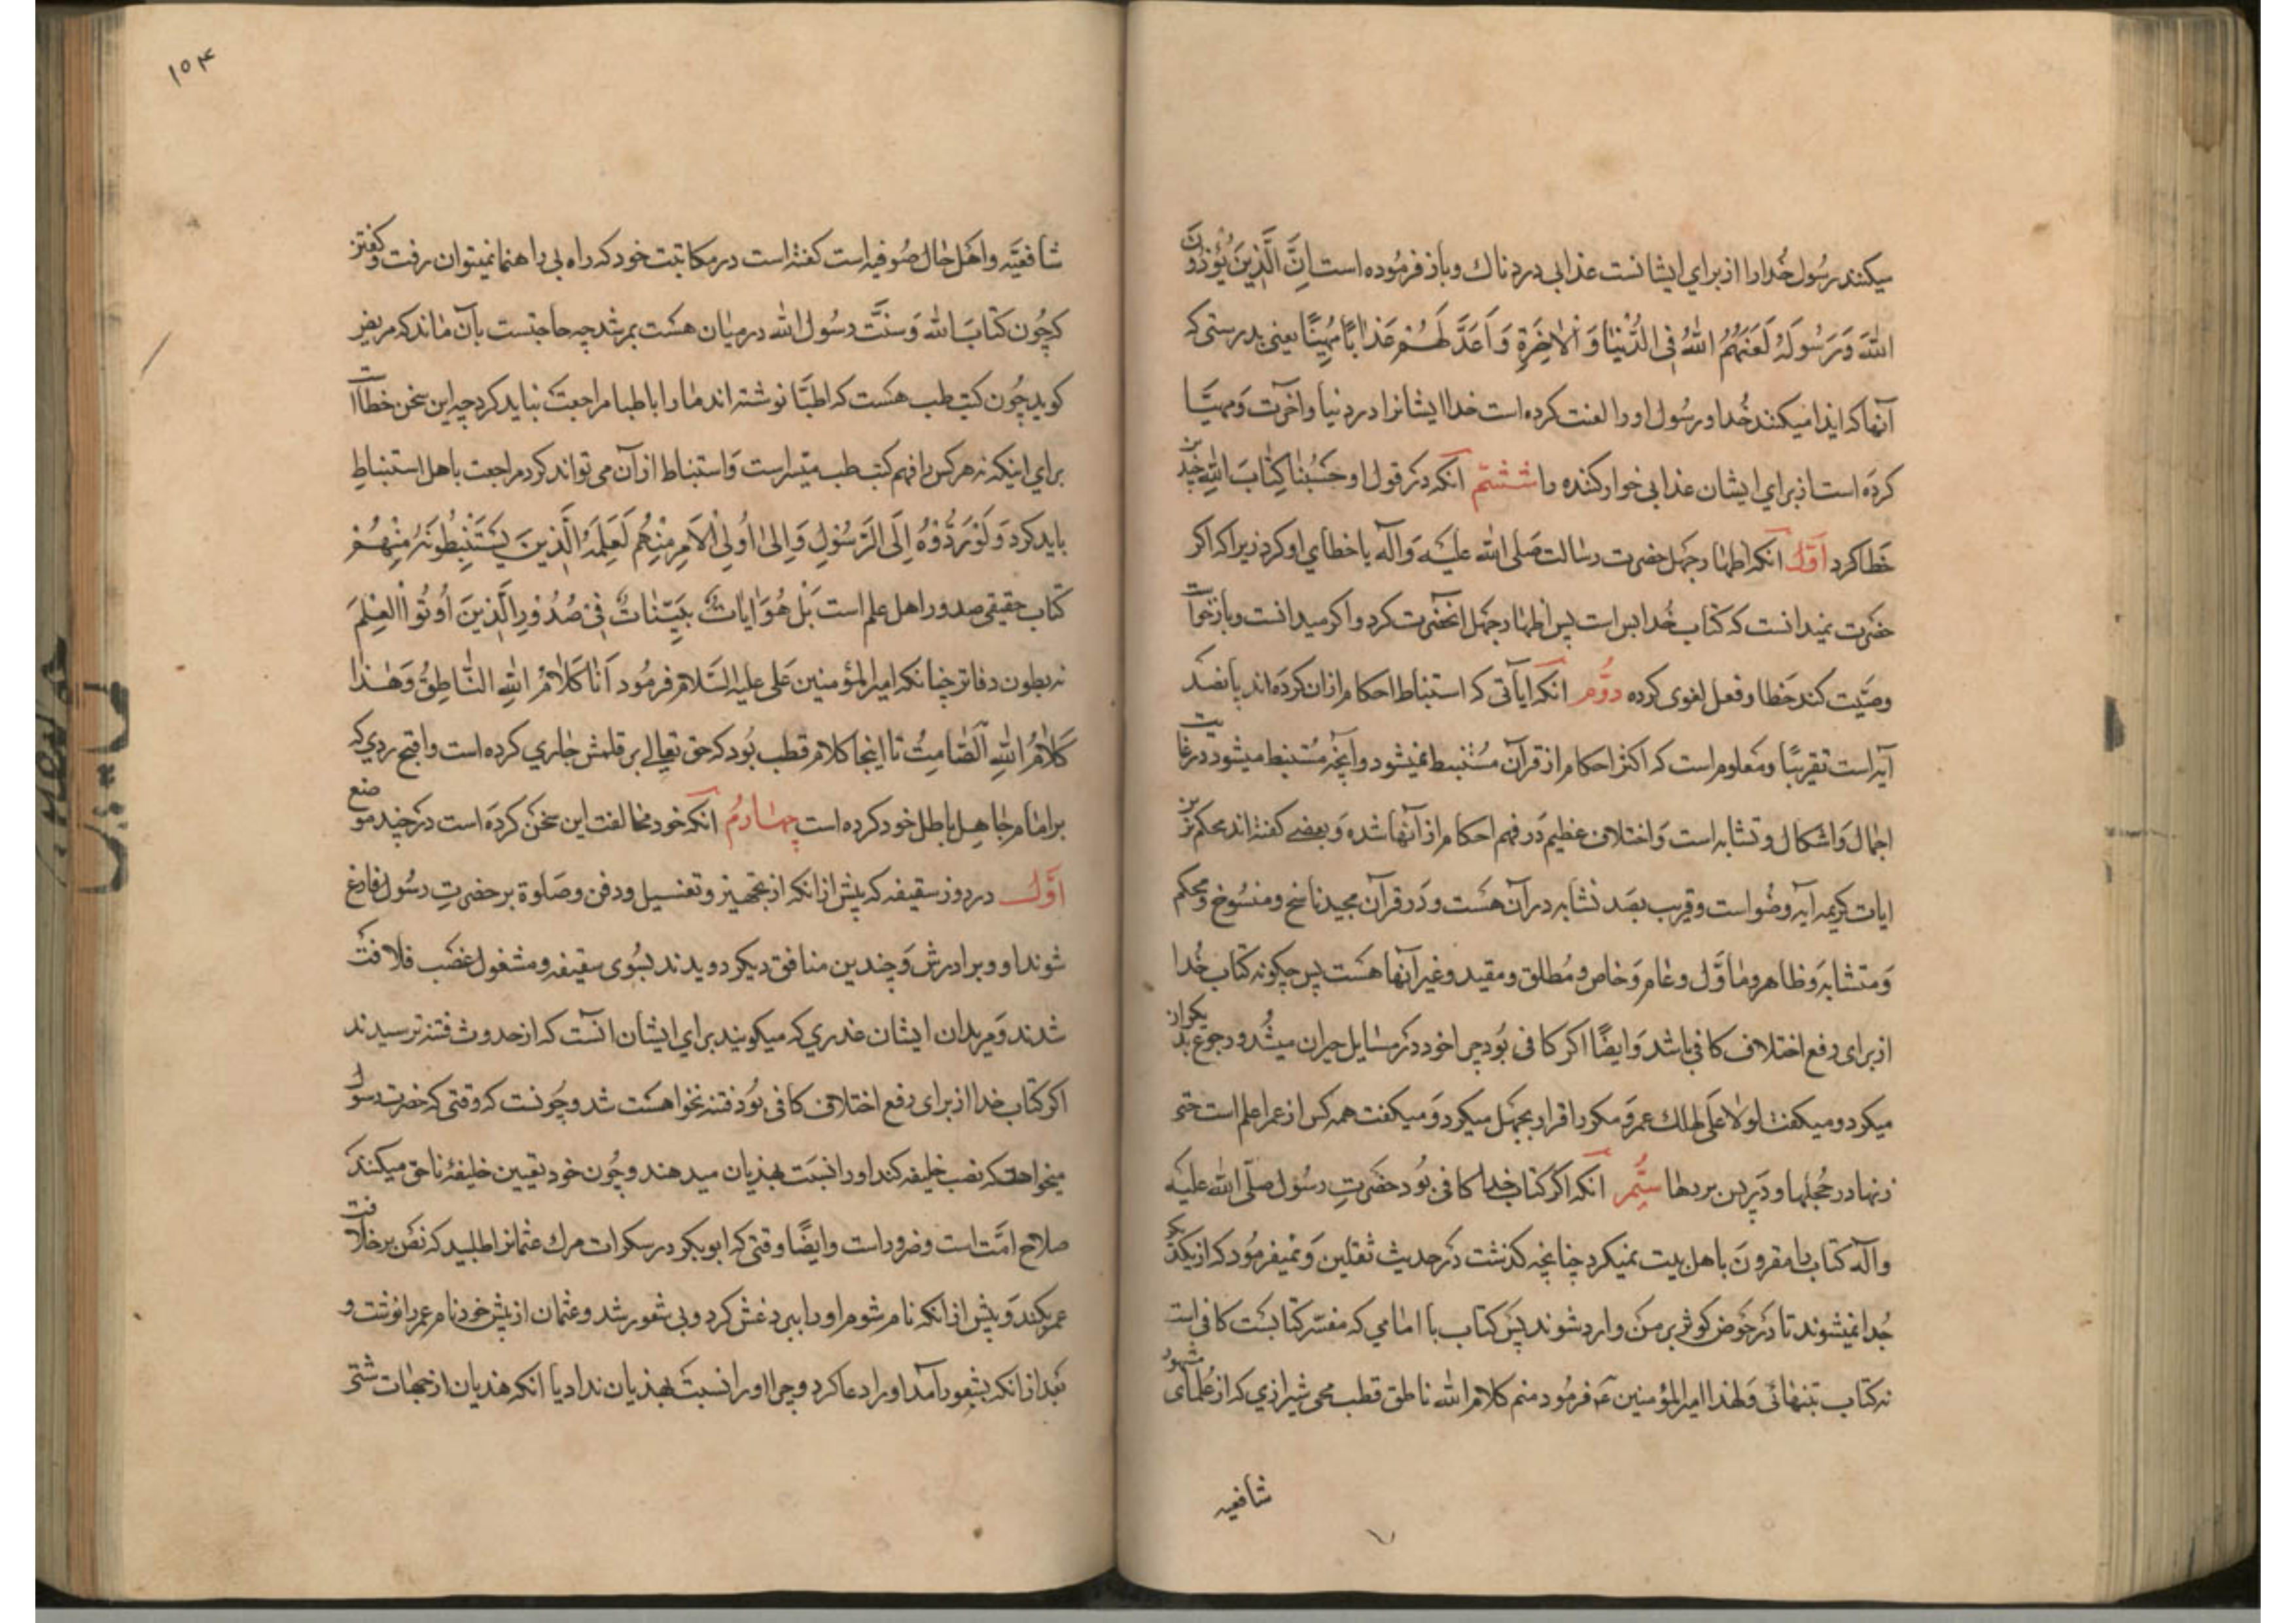 میکنند رسُول خُدا را از برای ایشانست عذابی دردناك و باز فرمُوده است اِنَّ الَّذِینَ یُؤْذُونَ
اللّٰهَ وَرَسُولَهُ لَعَنَهُمُ اللّٰهُ فِی الدُّنْیٰا وَالْاٰخِرَةِ وَاَعَدَّ لَهُمْ عَذٰابًا مُهِینًا یعنی بدرستی که
آنها که ایذا میکنند خُدا و رسُول او را لعنت کرده است خدا ایشانرا در دنیا و آخرت و مهیّا
کرده است از برای ایشان عذابی خوار کننده را ششم آنکه در قول او حَسْبُنٰا کِتٰابَ اللّٰهِ چند
خطا کرد اوّل آنکه اظهار جهل حضرت رسالت صلی الله علیه وآله یا خطای او کرد زیرا که اکر
حضرت نمیدانست که کتاب خُدا بس است پس اظهار جهل آنحضرت کرد و اکر میدانست و باز خواست
وصیّت کند خطا و فعل لغوی کرده دوّم آنکه آیاتی که استنباط احکام از ان کرده اند پانصد
آیه است تقریبًا و معلوم است که اکثر احکام از قرآن مُستنبط نمیشود و آنچه مُستنبط میشود در غایت
اجمال و اشکال و تشابه است و اختلاف عظیم در فهم احکام از آنها شده و بعضی کفته اند محکم ترین
ایات کریمه آیه وضُو است و قریب بصد تشابه در آن هست و در قرآن مجید ناسخ و منسُوخ و محکم
و متشابه و ظاهر و مأوّل و عام و خاص و مُطلق و مقید و غیر آنها هست پس چکونه کتاب خُدا
از برای رفع اختلاف کافی باشد و ایضًا اکر کافی بُود چرا خود در مسایل حیران میشُد و رجوع بدیکران
میکرد و میکفت لولا علی لهلك عمر و مکرر اقرار بجهل میکرد و میکفت همه کس از عمر اعلم است حتی
زنها در حُجلها و در پس پردها سیُّم آنکه اکر کتاب خدا کافی بُود حضرتِ رسُول صلّی الله علیه
وآله کتاب را مقرون با هل بیت نمیکرد چنانچه کذشت در حدیث ثقلین و نمیفرمُود که از یکدیکر
جُدا نمیشوند تا در حَوض کوثر بر من وارد شوند پس کتاب با امامی که مفسّر کتابست کافی است
نه کتاب بتنهائی و لهذا امیرالمؤمنین ع فرمُود منم کلام الله ناطق قطب محی شیرازی که از عُلمای مشهور
شافعیه
۱۵۴
شافعیّه و اهل حال صُوفیه است کفته است در مکاتبت خود که راه بی راهنما نمیتوان رفت و کفتن
که چُون کتابَ الله و سنّت رسُول الله در میان هست بمرشد چه حاجتست بآن ماند که مریض
کوید چُون کتب طب هست که اطبّا نوشته اند ما را باطبا مراجعت نباید کرد چه این سخن خطا است
برای اینکه نه هر کس را فهم کتب طب میّسر است و استنباط از آن می تواند کرد مراجعت باهل استنباط
باید کرد وَلَوْ رَدُّوْهُ اِلَی الرَّسُوْلِ وَاِلٰی اُولِی الْاَمْرِ مِنْهُمْ لَعَلِمَهُ الَّذِینَ یَسْتَنْبِطُونَهُ مِنْهُمْ
کتاب حقیقی صدور اهل علم است بَلْ هُوَ اٰیٰاتٌ بَیِّنٰاتٌ فِی صُدُوْرِ الَّذِینَ اُوتُوا الْعِلْمَ
نه بطون دفاتر چنانکه امیرالمؤمنین علی علیه السّلام فرمُود اَنَا کَلٰامُ اللّٰهِ النّٰاطِقُ وَهٰذٰا
کَلٰامُ اللّٰهِ الصّٰامِتُ تا اینجا کلام قطب بُود که حق تعالی بر قلمش جاری کرده است و اقبح ردی که
بر امام جاهل باطل خود کرده است چهارمُ آنکه خود مخالفت این سخن کرده است در چند موضع
اوّل در روز سقیفه که پیش از انکه از تجهیز و تغسیل و دفن و صلوة بر حضرتِ رسُول فارغ
شوند او و برادرش و چندین منافق دیکر دویدند بسُوی سقیفه و مشغول غصب خلافت
شدند و مریدان ایشان عذری که میکویند برای ایشان انست که از حدوث فتنه ترسیدند
اکر کتاب خدا از برای رفع اختلاف کافی بُود فتنه نخواهست شد و چُونست که وقتی که حضرت رسول
میخواهد که نصب خلیفه کند او را نسبت بهذیان میدهند و چُون خود تعیین خلیفهٔ ناحق میکنند
صلاح امّت است و ضرور است و ایضًا وقتی که ابوبکر در سکرات مرك عثمانرا طلبید که نص بر خلافت
عمر بکند و پیش از انکه نام شوم او را ببرد غش کرد و بی شعور شد و عثمان از پیش خود نام عمر را نوشت و
بعد از انکه بشعور آمد او را دعا کرد و چرا او را نسبت بهذیان نداد با انکه هذیان از جهات شتی